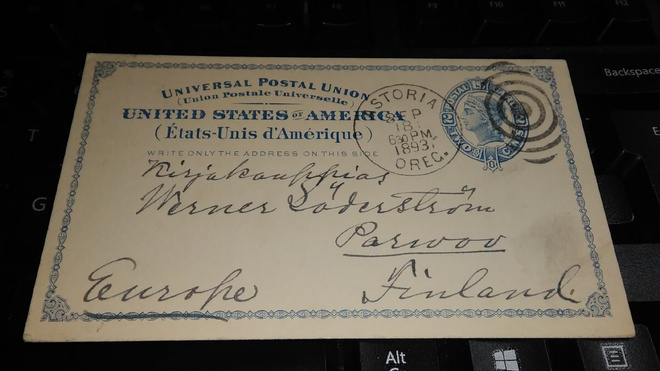 Backspace
UNIVERSAL POSTAL UNION
(Union Postale Universelle)
UNITED STATES OF AMERICA
(États-Unis d'Amérique)
WRITE ONLY THE ADDRESS ON THIS SIDE
ASTORIA
SEP
18
630PM
1893
OREG.
Kirjakauppias
Werner Söderström
Parwoo
Europe
Finland
T
G
Alt